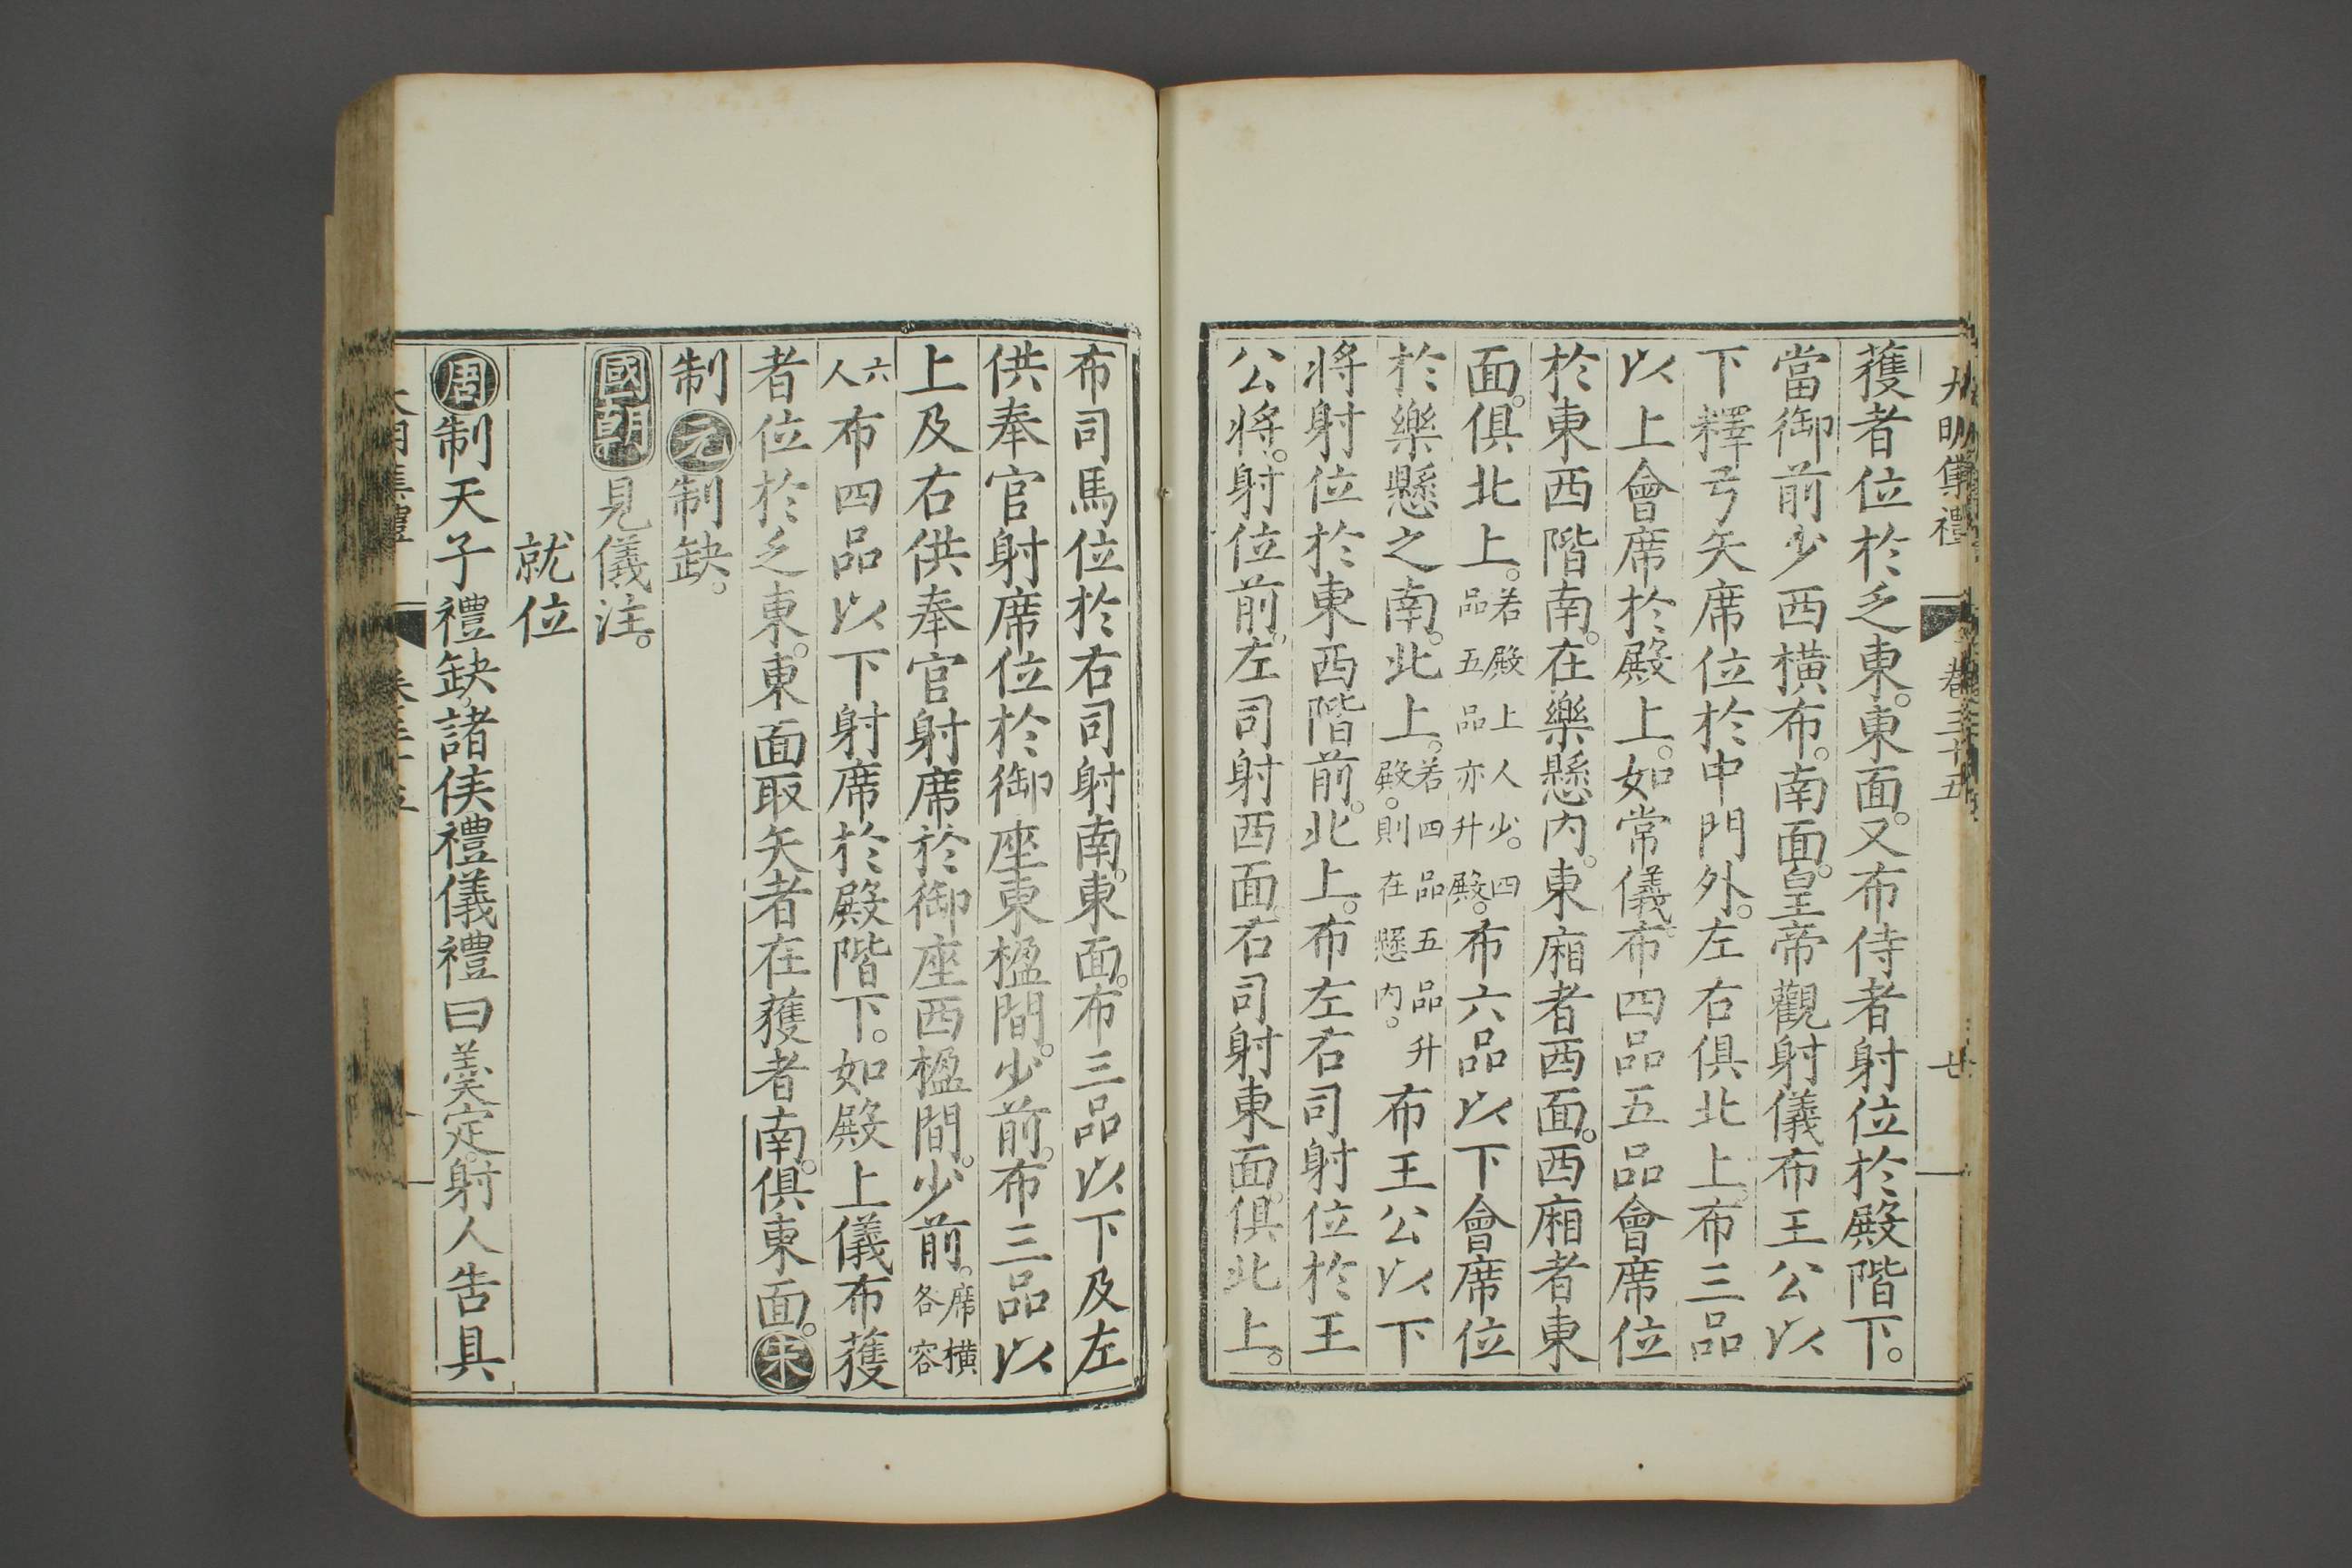 大明集禮 卷三十五 廿
獲者位於乏東。東面。又布侍者射位於殿階下。
當御前少西橫布。南面。皇帝觀射儀布王公以
下釋弓矢席位於中門外。左右俱北上。布三品
以上會席於殿上。如常儀。布四品五品會席位
於東西階南。在樂懸內。東廂者西面。西廂者東
面。俱北上。若殿上人少。四品五品亦升殿。布六品以下會席位
於樂懸之南。北上。若四品五品升殿。則在懸內。布王公以下
將射位於東西階前。北上。布左右司射位於王
公將。射位前。左司射西面。右司射東面。俱北上。
布司馬位於右司射南。東面。布三品以下及左
供奉官射席位於御座東楹間。少前。布三品以
上及右供奉官射席於御座西楹間。少前。席橫各容
六人布四品以下射席於殿階下。如殿上儀布獲
者位於乏東。東面取矢者在獲者南。俱東面。宋
制元制缺。
國朝見儀注。
就位
周制天子禮缺。諸侯禮儀禮曰羹定。射人告具